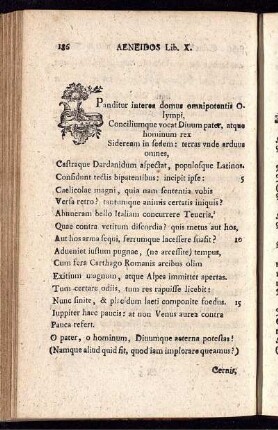 186 AENEIDOS Lib. X.
Panditur interea domus omnipotentis O-
lympi,
Conciliumque vocat Divum pater, atque
hominum rex
Sideream in sedem: terras vnde arduus
omnes,
Castraque Dardanidum aspectat, populosque Latinos.
Considunt tectis bipatentibus: incipit ipse: 5
Caelicolae magni, quia nam sententia vobis
Versa retro? tantumque animis certatis iniquis?
Abnueram bello Italiam concurrere Teucris,
Quae contra vetitum discordia? quis metus aut hos,
Aut hos arma sequi, ferrumque lacessere suasit? 10
Adueniet iustum pugnae, (ne arcessite) tempus,
Cum fera Carthago Romanis arcibus olim
Exitium magnum, atque Alpes immittet apertas.
Tum certare odiis, tum res rapuisse licebit:
Nunc sinite, & placidum laeti componite foedus. 15
Iuppiter haec paucis: at non Venus aurea contra
Pauca refert.
O pater, o hominum, Diuumque aeterna potestas!
(Namque aliud quid sit, quod iam implorare queamus?)
Cernis,